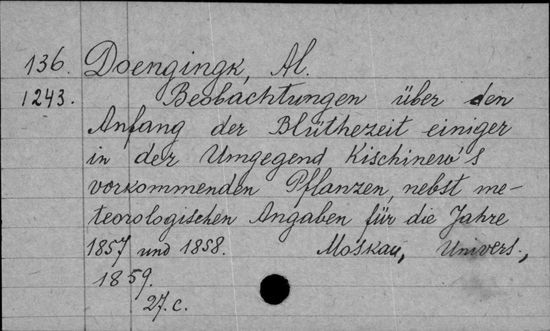 136. Doengingk, Al.
1243. Beobachtungen über den
Anfang der Blüthezeit einiger
in der Umgegend Kischinew's
vorkommenden Pflanzen, nebst me-
teorologischen Angaben für die Jahre
1857 und 1858. Moskau, Univers.,
1859.
27. c.